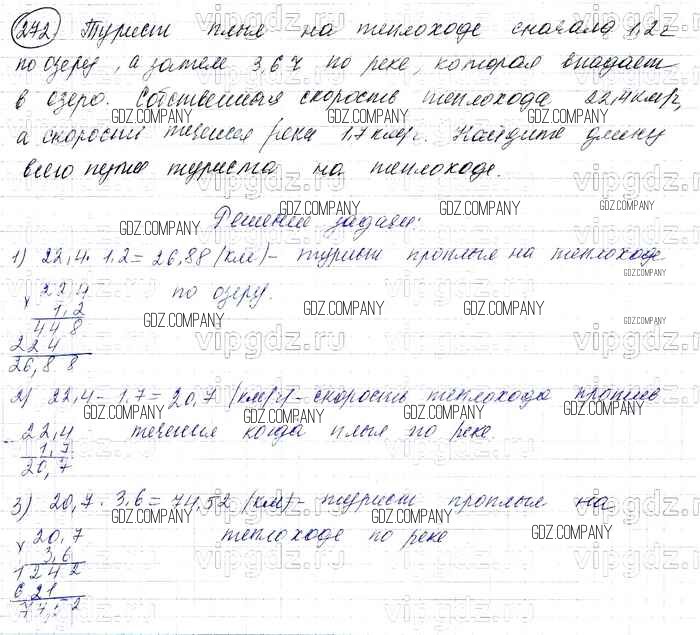 272. Турист плыл на теплоходе сначала 1,2 ч
по озеру, а затем 3,6 ч по реке, которая впадает
в озеро. Собственная скорость теплохода 22,4 км/ч,
а скорость течения реки 1,7 км/ч. Найдите длину
всего пути туриста на теплоходе.
Решение задачи:
1) 22,4 · 1,2 = 26,88 (км) – турист проплыл на теплоходе
по озеру.
× 22,4
1,2
448
224
26,88
2) 22,4 - 1,7 = 20,7 (км/ч) – скорость теплохода против
течения когда плыл по реке.
- 22,4
1,7
20,7
3) 20,7 · 3,6 = 74,52 (км) – турист проплыл на
теплоходе по реке
× 20,7
3,6
1242
621
GDZ.COMPANY
vipgdz.ru